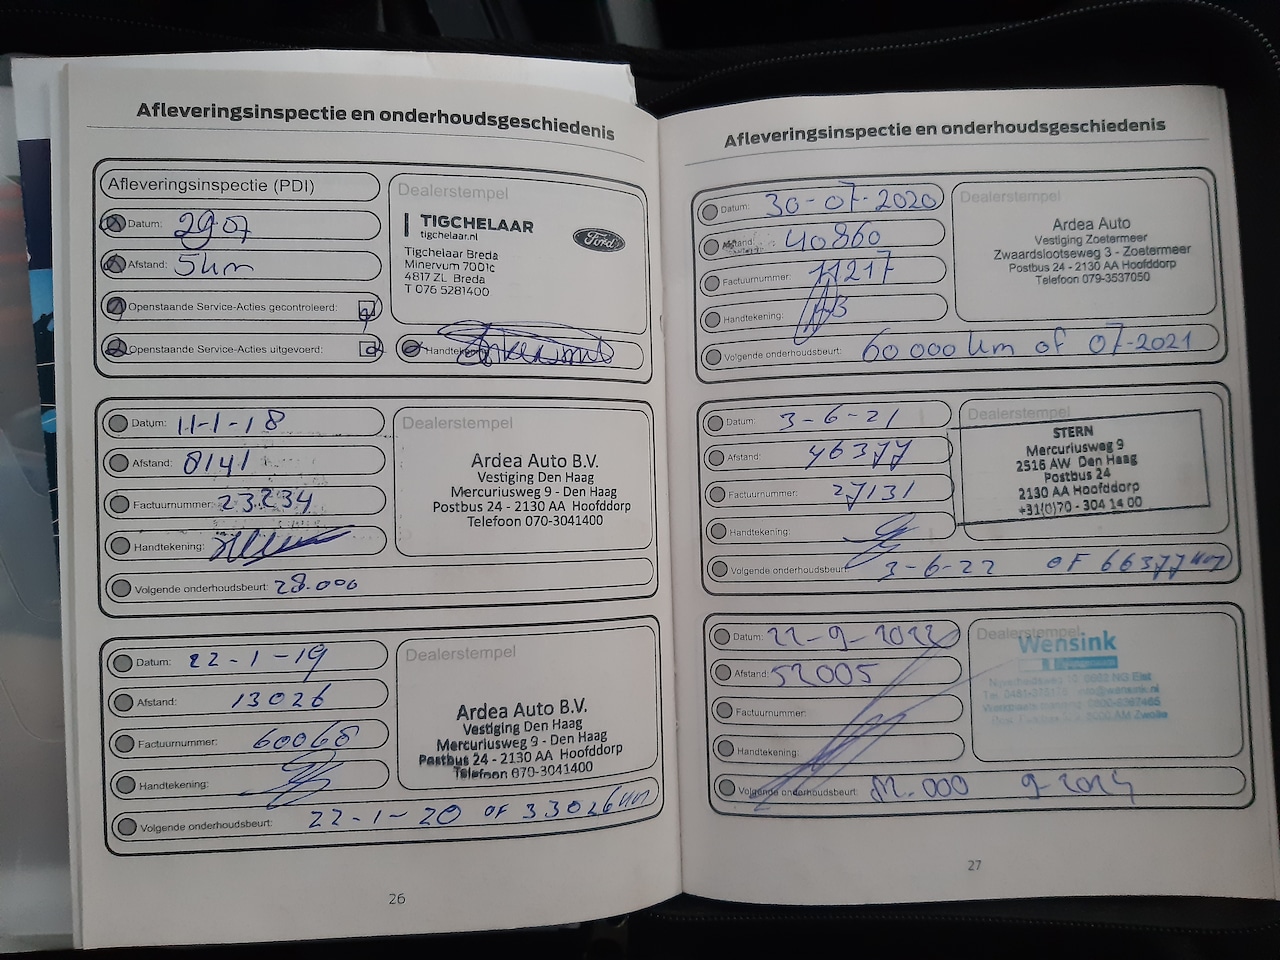 Afleveringsinspectie en onderhoudsgeschiedenis
Afleveringsinspectie (PDI)
Datum: 29-07
Afstand: 5 km
Openstaande Service-Acties gecontroleerd:
Openstaande Service-Acties uitgevoerd:
Dealerstempel
TIGCHELAAR
tigchelaar.nl
Ford
Tigchelaar Breda
Minervum 7001c
4817 ZL Breda
T 076 5281400
Handtekening:
Datum: 11-1-18
Afstand: 8141
Factuurnummer: 23234
Handtekening:
Volgende onderhoudsbeurt: 28.000
Dealerstempel
Ardea Auto B.V.
Vestiging Den Haag
Mercuriusweg 9 - Den Haag
Postbus 24 - 2130 AA Hoofddorp
Telefoon 070-3041400
Datum: 22-1-19
Afstand: 13026
Factuurnummer: 60068
Handtekening:
Volgende onderhoudsbeurt: 22-1-20 OF 33026 km
Dealerstempel
Ardea Auto B.V.
Vestiging Den Haag
Mercuriusweg 9 - Den Haag
Postbus 24 - 2130 AA Hoofddorp
Telefoon 070-3041400
26
Afleveringsinspectie en onderhoudsgeschiedenis
Datum: 30-07-2020
Afstand: 40860
Factuurnummer: 11217
Handtekening:
Volgende onderhoudsbeurt: 60 000 km of 07-2021
Dealerstempel
Ardea Auto
Vestiging Zoetermeer
Zwaardslootseweg 3 - Zoetermeer
Postbus 24 - 2130 AA Hoofddorp
Telefoon 079-3537050
Datum: 3-6-21
Afstand: 46377
Factuurnummer: 27131
Handtekening:
Volgende onderhoudsbeurt: 3-6-22 OF 66377 km
Dealerstempel
STERN
Mercuriusweg 9
2516 AW Den Haag
Postbus 24
2130 AA Hoofddorp
+31(0)70 - 304 14 00
Datum: 22-9-2022
Afstand: 52005
Factuurnummer:
Handtekening:
Volgende onderhoudsbeurt: 9-2024
Dealerstempel
Wensink
27